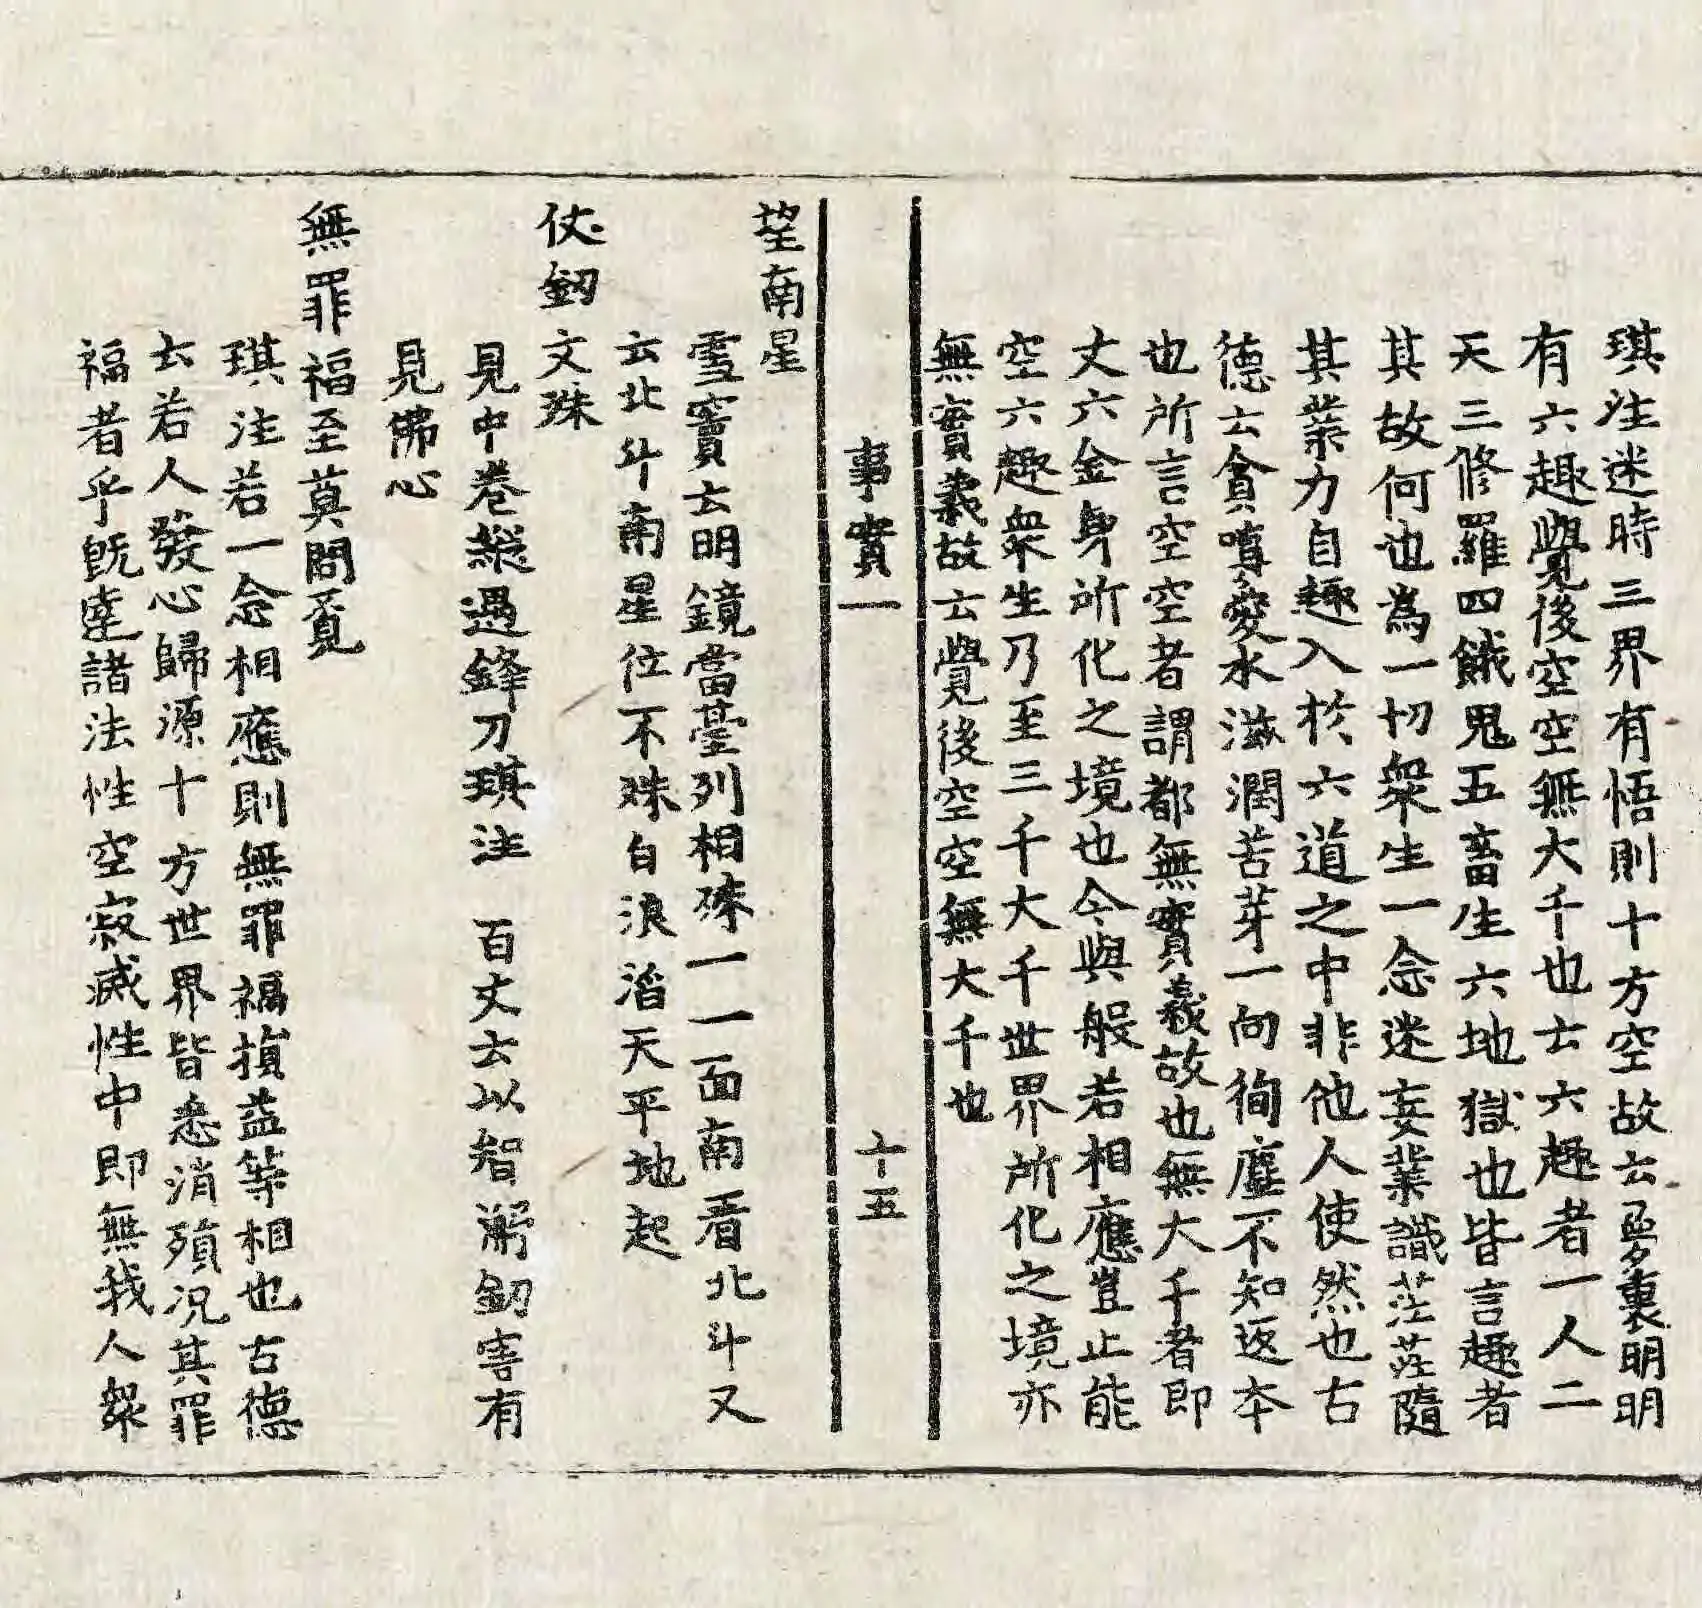 琪注迷時三界有悟則十方空故云夢裏明明
有六趣覺後空空無大千也士六趣者一人二
天三修羅四餓鬼五畜生六地獄也皆言趣者
其故何也為一切衆生一念迷妄業識茫茫隨
其業力自趣入於六道之中非他人使然也古
德云貪嗔愛水滋潤苦芽一向徇塵不知返本
也所言空空者謂都無實義故也無大千者即
丈六金身所化之境也今與般若相應豈止能
空六趣衆生乃至三千大千世界所化之境亦
無實義故云覺後空空無大千也
事實一
十五
望南星
雪竇云明鏡當臺列相殊一一面南看北斗又
云北斗南星位不殊白浪滔天平地起
仗釰文殊
見中卷縱遇鋒刀琪注 百丈云以智漸釰害有
見佛心
無罪福至莫問覔
琪注若一念相應則無罪福損益等相也古德
云若人發心歸源十方世界皆悉消殞况其罪
福者乎既達諸法性空寂滅性中即無我人衆